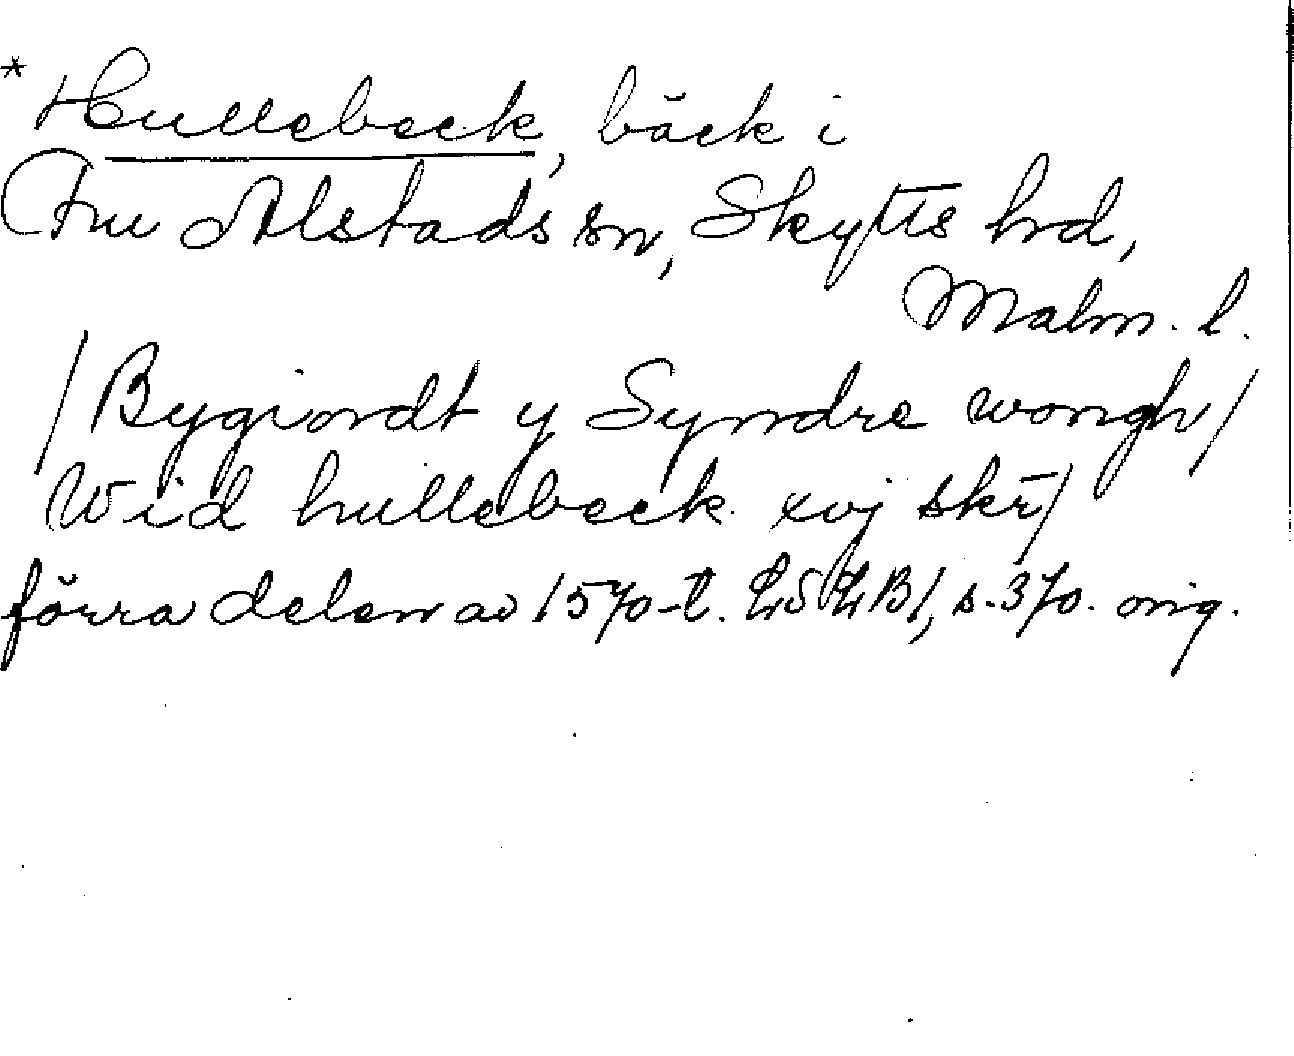 * Hullebeck, bäck i
Fru Alstads sn, Skytts hd,
Malm. l.
/Bygiordt y Syndre wongh/
Wid hullebeck xvj skr/
förra delen av 1570-t. LSLB1, s. 370. orig.